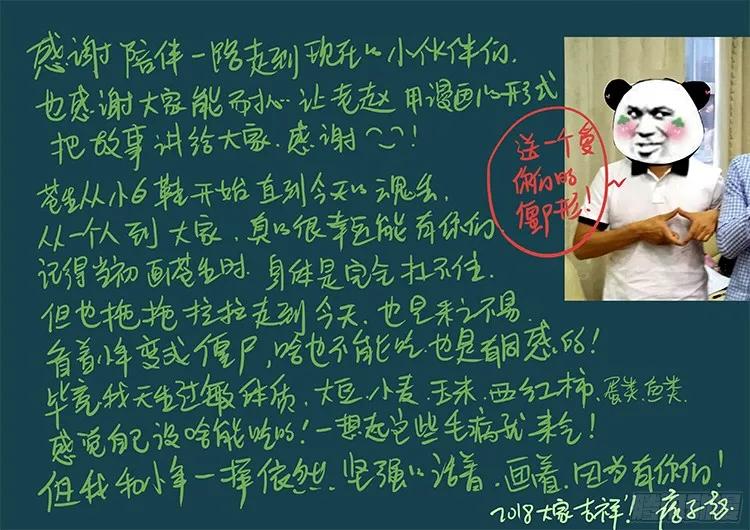 感谢陪伴一路走到现在的小伙伴们.
也感谢大家能耐心让老赵用漫画的形式
把故事讲给大家.感谢!
送一个爱
你们的
僵尸形!
苍生从小 开始直到今天的魂丢,
从一个人到大家,真的很幸运能有你们
记得当初画苍生时.身体是完全扛不住.
但也拖拖拉拉走到今天.也是来之不易.
看着小年变成僵尸,啥也不能吃.也是有同感的!
毕竟我天生过敏体质,大豆.小麦.玉米.西红柿.蛋类.鱼类.
感觉自己没啥能吃的!一想起这些毛病就来气!
但我和小年一样依然坚强的活着.画着.因为有你们!
2018大家吉祥!